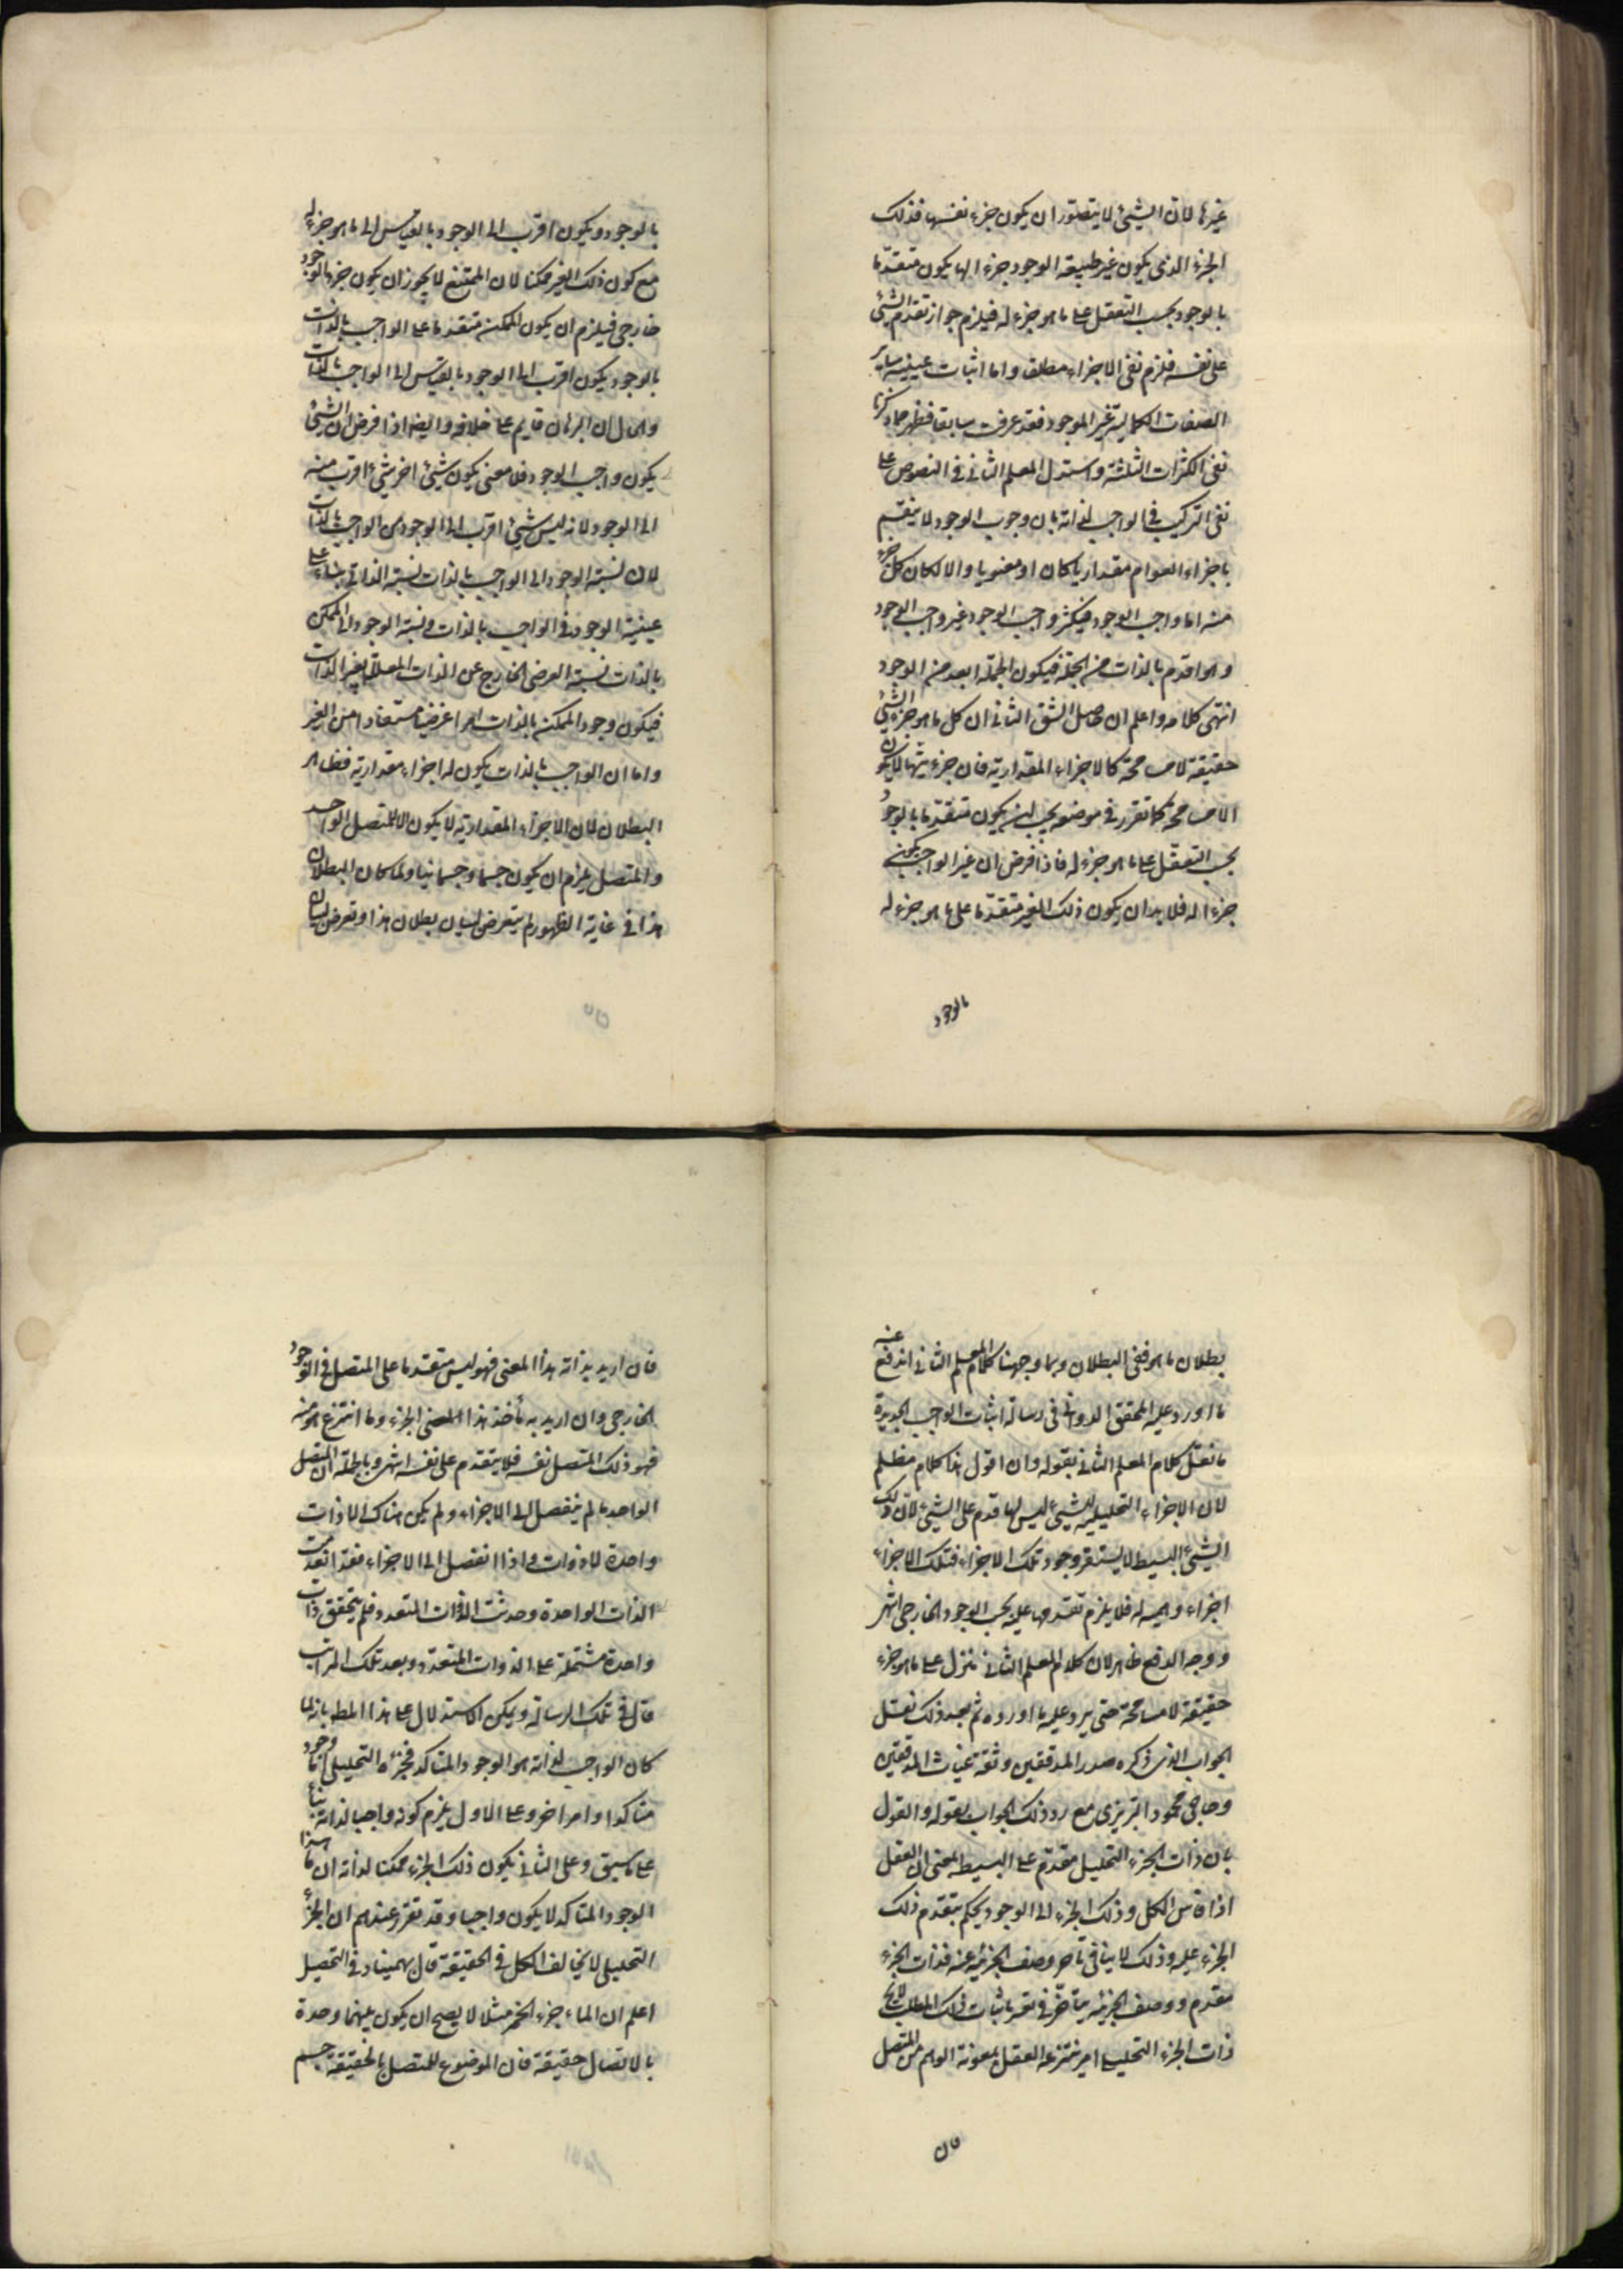 غيرها لان الشيئ لا يتصور ان يكون جزء نفسها فذلك
الجزء الذى يكون غير طبيعة الوجود جزء الها يكون متقدما
بالوجود بحسب التعقل على ما هو جزء له فيلزم جواز تقدم الشيئ
على نفسه فلزم نفى الاجزاء مطلقا واما اثبات عينية ساير
الصفات الكمالية غير الموجود فقد عرفت سابقا فظهر مما ذكرنا
نفى الكثرات الثلثة واستدل المعلم الثانى فى الفصوص على
نفى التركيب فى الواجب لذاته بان وجوب الوجود لا ينقسم
باجزاء القوام مقداريا كان او معنويا والا لكان كل جزء
منه اما واجب الوجود فيكثر واجب الوجود غير واجب الوجود
وهو اقدم بالذات من الجملة فيكون الجملة ابعد من الوجود
انتهى كلامه واعلم ان حاصل الشق الثانى ان كل ما هو جزء الشيئ
حقيقة لا مسامحة كالاجزاء المقدارية فان جزئيتها لا يكون
الا مسامحة كما تقرر فى موضعه يجب ان يكون متقدما بالوجود
بحسب التعقل على ما هو جزء له فاذا فرض ان غير الواجب يكون
جزء اله فلا بد ان يكون ذلك الغير متقدما على ما هو جزء له
بالوجود
بالوجود ويكون اقرب الى الوجود بالقياس الى ما هو جزء له
مع كون ذلك الغير ممكنا لان الممتنع لا يجوز ان يكون جزء الموجود
خارجى فيلزم ان يكون الممكن متقدما على الواجب بالذات
بالوجود يكون اقرب الى الوجود بالقياس الى الواجب بالذات
والحال ان البرهان قايم على خلافه وايضا اذا فرض ان الشيئ
يكون واجب الوجود فلا معنى يكون شيئ اخر شيئ اقرب منه
الى الوجود لانه ليس شيئ اقرب الى الوجود من الواجب بالذات
لان نسبة الوجود الى الواجب بالذات نسبة الذاتى بناء على
عينية الوجود فى الواجب بالذات ونسبة الوجود الى الممكن
بالذات نسبة العرضى الخارج عن الذات المعلل بغير الذات
فيكون وجود الممكن بالذات امرا عرضيا مستفادا من الغير
واما ان الواجب بالذات يكون له اجزاء مقدارية فظاهر
البطلان لان الاجزاء المقدارية لا يكون الا للمتصل الواحد
والمتصل يلزم ان يكون جسما وجسمانيا ولما كان البطلان
هذا فى غاية الظهور لم يتعرض لبيان بطلان هذا وتعرض لبيان
بطلان ما هو خفى البطلان وبما وجهنا كلام المعلم الثانى اندفع عنه
ما اورد عليه المحقق الدوانى فى رسالة اثبات الواجب الجديدة
ما نقل كلام المعلم الثانى بقوله وان اقول هذا كلام مظلم
لان الاجزاء التحليلية للشيئ ليس لها قدم على الشيئ لان ذلك
الشيئ البسيط لا يستقر وجود تلك الاجزاء فتلك الاجزاء
اجزاء وهمية له فلا يلزم تقدمها عليه بحسب الوجود الخارجى انتهى
ووجه الدفع ظاهر لان كلام المعلم الثانى منزل على ما هو جزء
حقيقة لا مسامحة حتى يرد عليه ما اورده ثم بعد ذلك نقل
الجواب الذى ذكره صدر المدققين وثقة غياث المدققين
وحاجى محمود التبريزى مع رد ذلك الجواب بقوله والقول
بان ذات الجزء التحليلى مقدم على البسيط بمعنى ان العقل
اذا قاس الكل وذلك الجزء الى الوجود يحكم بتقدم ذلك
الجزء عليه وذلك لا ينافى تاخر وصف الجزئية عنه فذات الجزء
مقدم ووصف الجزئية متاخر فى تقرير اثبات ذلك المطلب لان
ذات الجزء التحليلى امر ينتزعه العقل بمعونة الوهم من المتصل
فان
فان اريد بذاته هذا المعنى فهو ليس متقدما على المتصل فى الوجود
الخارجى وان اريد به ماخذ هذا المعنى الجزء وما انتزع هو منه
فهو ذلك المتصل نفسه فلا يتقدم على نفسه انتهى وبالجملة ان المتصل
الواحد ما لم ينفصل الى الاجزاء ولم يكن هناك الا ذات
واحدة لا ذوات واذا انفصل الى الاجزاء فقد انعدمت
الذات الواحدة وحدثت الذوات المتعدد فلم يتحقق ذات
واحدة مشتملة على الذوات المتعددة وبعد تلك المراتب
قال فى تلك الرسالة ويمكن الاستدلال على هذا المطلب بانه لما
كان الواجب لذاته هو الوجود المتاكد فجزئه التحليلى اما وجود
متاكد او امر اخر وعلى الاول يلزم كونه واجبا لذاته بناء
على ما سبق وعلى الثانى يكون ذلك الجزء ممكنا لذاته ان ما سوا
الوجود المتاكد لا يكون واجبا وقد تقرر عندهم ان الجزء
التحليلى لا يخالف الكل فى الحقيقة قال بهمنيار فى التحصيل
اعلم ان الماء جزء الخمر مثلا لا يصح ان يكون بينهما وحدة
بالاتصال حقيقة فان الموضوع للمتصل بالحقيقة جسم